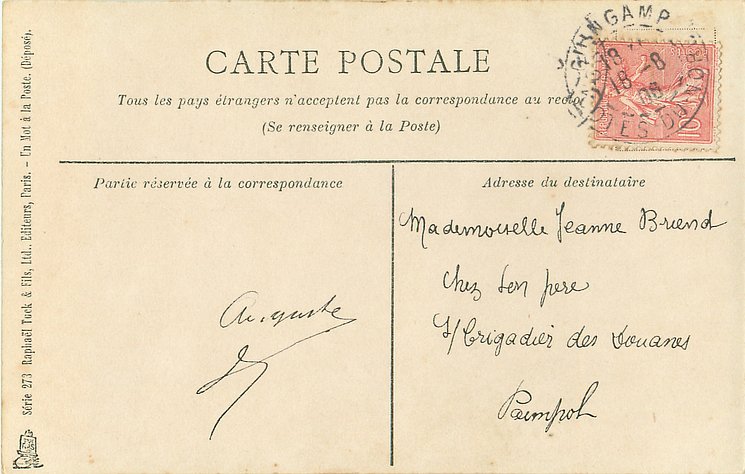 CARTE POSTALE
Tous les pays étrangers n'acceptent pas la correspondance au recto
(Se renseigner à la Poste)
GUINGAMP
18
18 - 8
08
CÔTES-DU-NORD
10
Partie réservée à la correspondance
Auguste
Adresse du destinataire
Mademoiselle Jeanne Briend
Chez Son père
S/brigadier des Douanes
Paimpol
Série 273 Raphaël Tuck & Fils, Ltd., Editeurs, Paris. - Un Mot à la Poste. (Déposé).